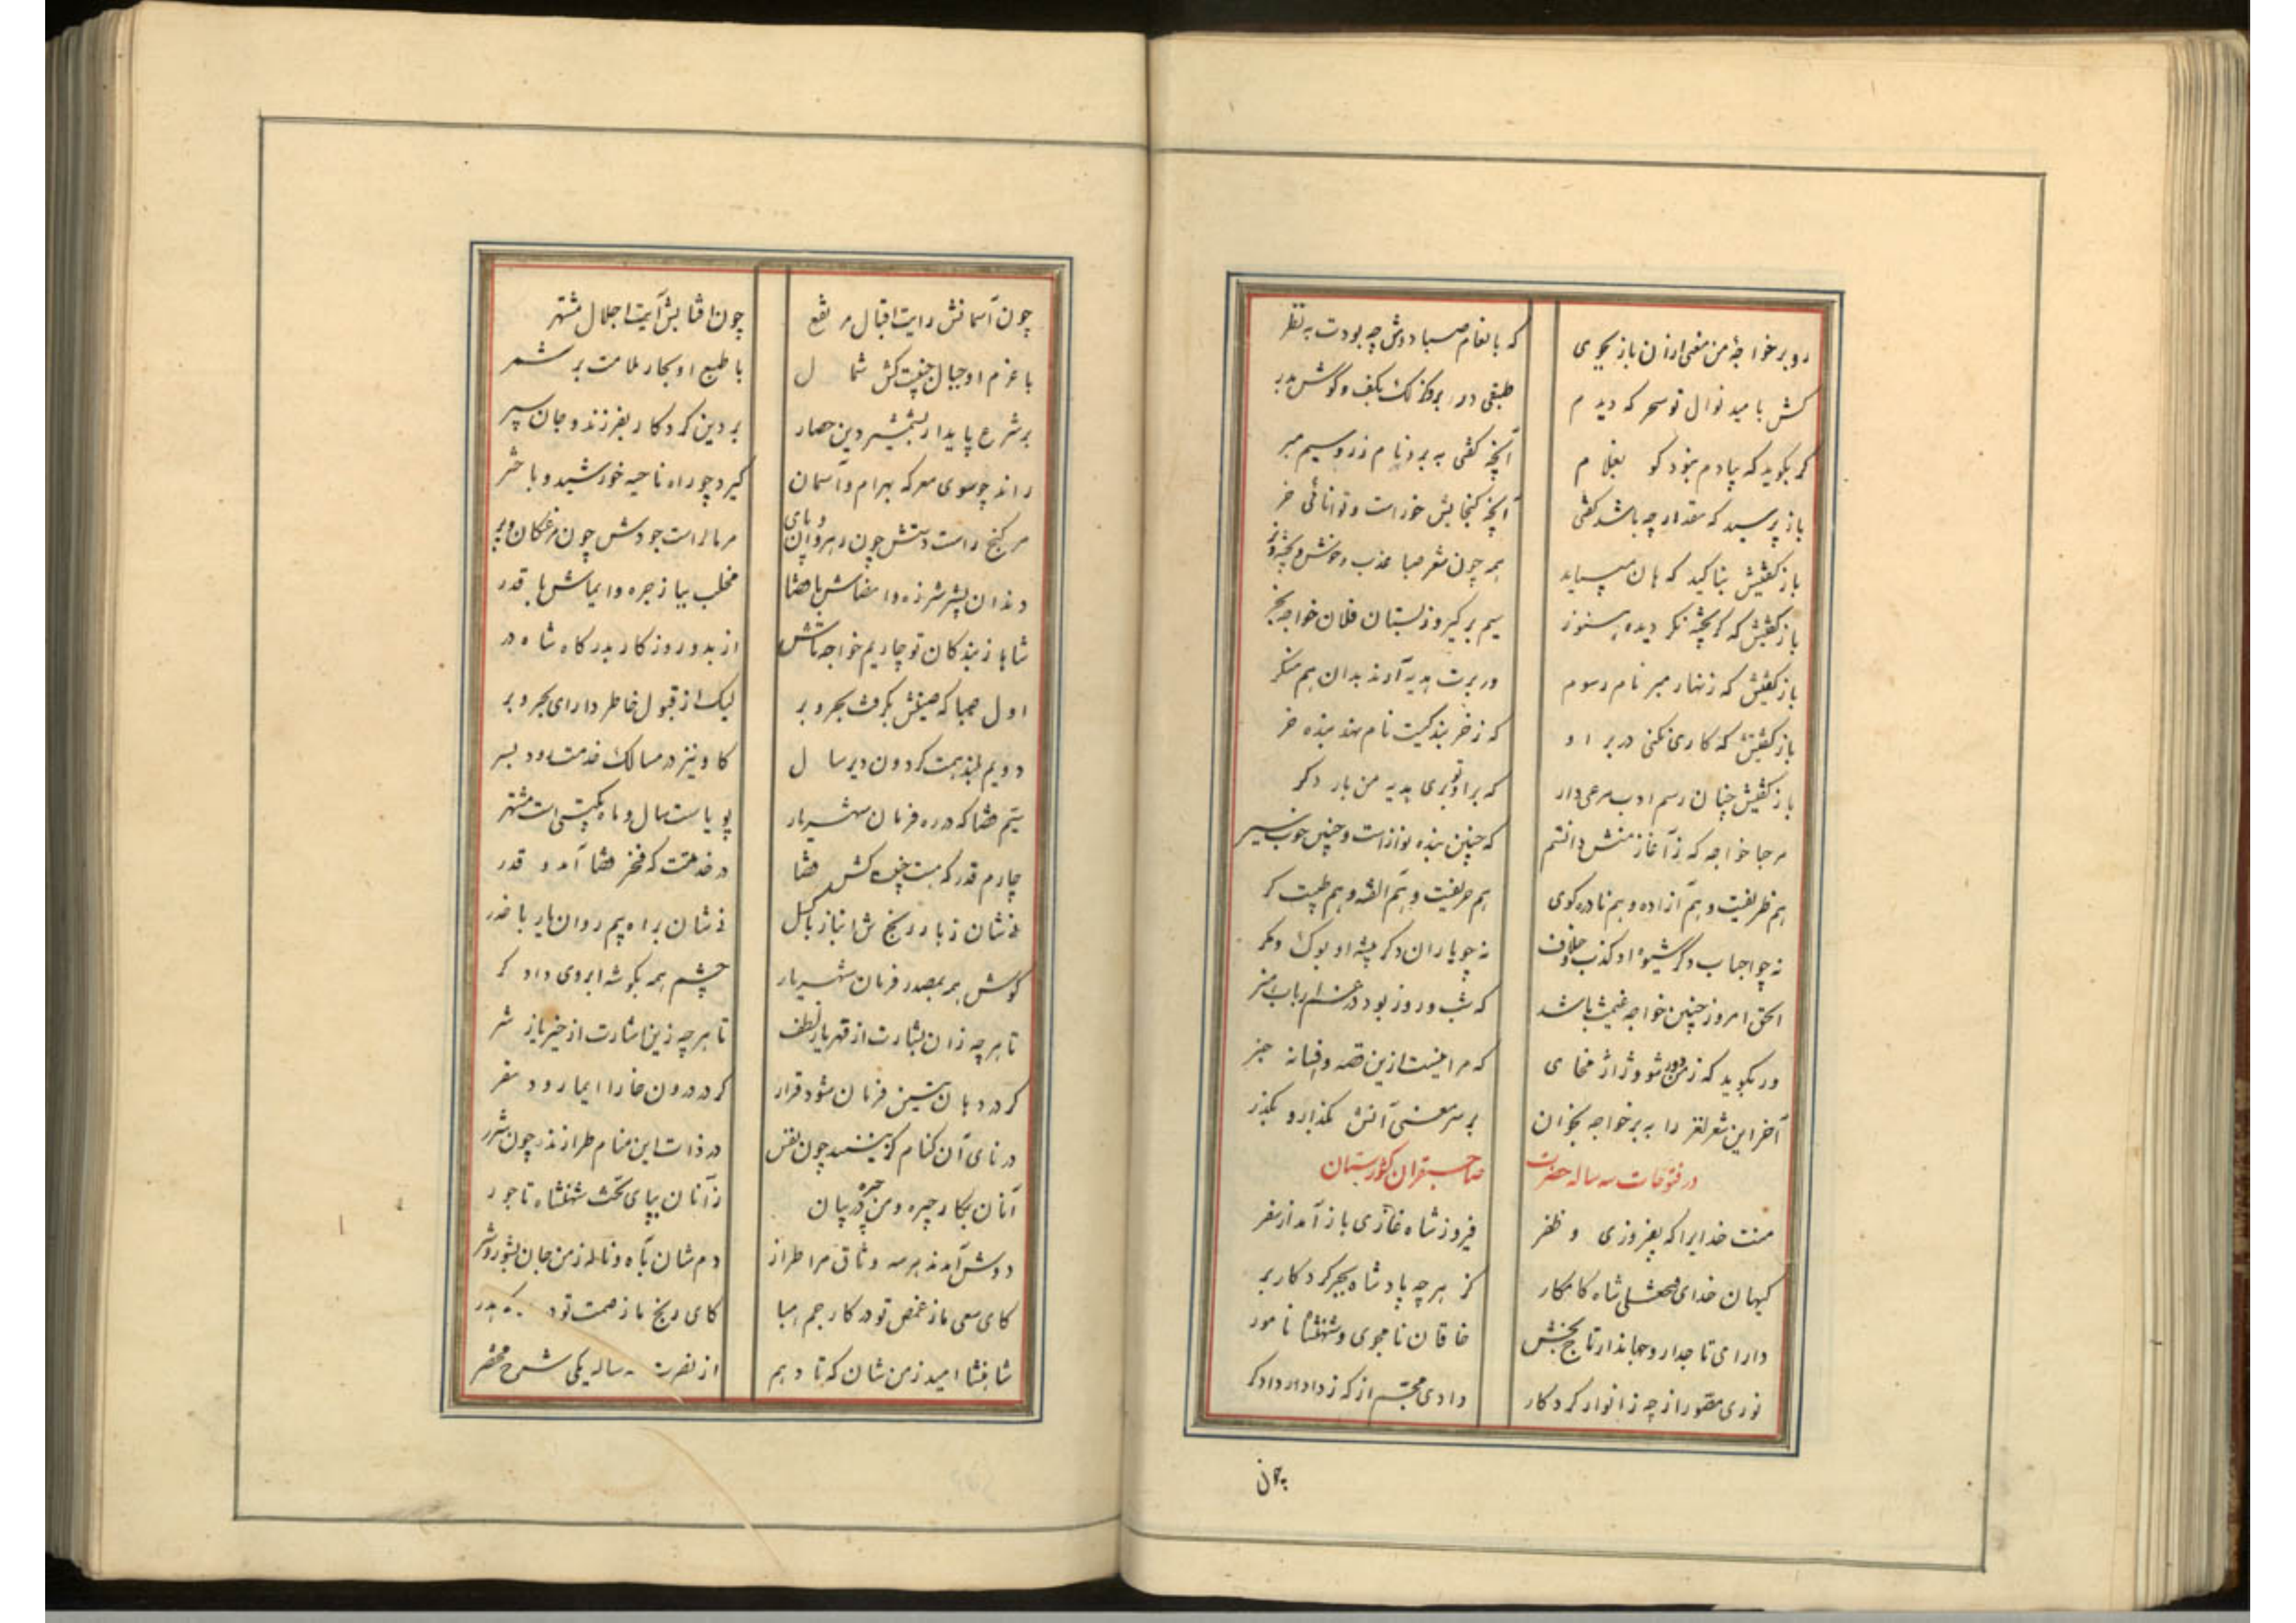 رو بر خواجهٔ من معنی ازان باز بجوی که بانعام صبا دوش چه بودت به نظر
کش بامید نوال تو سحر که دیدم طبقی در بر و کزلک بکف و گوش بدر
گر بگوید که بیادم نبود کو بغلام آنچه گفتی به بر و نام زر و سیم مبر
باز پرسید که مقدار چه باشد گفتی آنچه گنجایش خوراست و توانائی خر
باز گفتیش بتاکید که هان میباید همه چون شعر صبا عذب و خوش و پخته و تر
باز گفتیش که گر پخته نگردیده هنوز سیم برگیر و ز بستان فلان خواجه بخر
باز گفتیش که زنهار مبر نام رسوم ور برت هدیه آرند بدان هم منگر
باز گفتیش که کاری نکنی در بر او که ز خربندگیت نام نهد بنده خر
باز گفتیش چنان رسم ادب مرعی دار که بر او تو بری هدیه من بار دگر
مرحبا خواجه که ز آغاز منش دانستم که چنین بنده نوازاست و چنین خوب سیر
هم ظریفیت و هم آزاده و هم نادره گوی هم حریفیت و هم الفه و هم طیبت گر
نه چو احباب دگر شیوهٔ او کذب و خلاف نه چو یاران دگر پیشه او بوک و مگر
الحق امروز چنین خواجه غنیمت باشد که شب و روز بود در غم ارباب هنر
ور بگوید که ز من دور شو و ژاژ مخای که مرا نیست ازین قصه و افسانه خبر
آخر این شعر لغز را به بر خواجه بخوان بر سر معنی آنش بگذار و بگذر
در فتوحات سه ساله حضرت صاحبقران کشورستان
منت خدایرا که بفیروزی و ظفر فیروز شاه غازی باز آمد از سفر
کیهان خدای فتحعلی شاه کامکار کز هر چه پادشاه بجز کردکار بر
دارای تاجدار و جهاندار تاج بخش خاقان نامجوی و شهنشاه نامور
نوری مصور از چه ز انوار کردکار دادی مجسم از که ز دادار دادگر
چون
چون آسمانش رایت اقبال مرتفع چون افتابش آیت اجلال مشتهر
با عزم او جبال جنیبت کش شمال با طبع او بحار ملامت بر شمر
بر شرع پایدار بشمشیر دین حصار بر دین کردکار بفرزند و جان سپر
راند چو سوی معرکه بهرام و آسمان گیرد چو راه ناحیه خورشید و باختر
هر گنج راست دستش چون رهروان و پای هر مال راست جودش چون مرغکان و پر
دندان شیر شرزه و امضاش با قضا مخلب بباز جره و ایماش با قدر
شاها ز بندکان تو چاریم خواجه تاش از بدو روزکار بدرکاه شاه در
اول صبا که صیتش بگرفت بحر و بر لیک از قبول خاطر دارای بحر و بر
دویم بلند همت کردون دیر سال کاو نیز در مسالک خدمت رود بسر
سیم قضا که در ره فرمان شهریار پویاست سال و ماه بگیتی است مشتهر
چارم قدر که هست جنیبت کش قضا در خدمتت که فخر قضا آمد و قدر
نه شان ز بار رنج نشا نباز با کسل نه شان براه بیم روان یار با ضرر
گوش همه بمصدر فرمان شهریار چشم همه بگوشه ابروی دادگر
تا هر چه زان بشارت از قهر یا ز لطف تا هر چه زین اشارت از خیر یا ز شر
گر در دهان تنین فرمان شود قرار گر در درون خارا ایما رود سفر
در نای آن کنام گزینند چون نفس در ذات این منام طرازند چون شرر
آنان بکار چیره و من خیره در پیان ز آنان بپای تخت شهنشاه تاجور
دوش آمدند هر سه وثاق مرا طراز دم شان بآه و ناله ز من جان بشور و شر
کای سعی ما ز غمض تو در کار جم هبا کای رنج ما ز صمت تو هدر
شاهنشا امید ز من شان که تا دهم از نصرت سه ساله یکی شرح مختصر